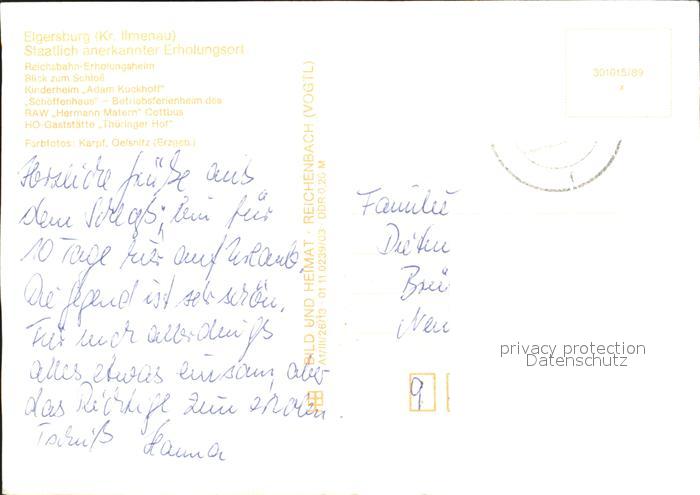 Elgersburg (Kr. Ilmenau)
Staatlich anerkannter Erholungsort
Reichsbahn-Erholungsheim
Blick zum Schloß
Kinderheim „Adam Kuckhoff“
„Schöffenhaus“ – Betriebsferienheim des
RAW „Hermann Matern“ Cottbus
HO-Gaststätte „Thüringer Hof“
Farbfotos: Karpf, Oelsnitz (Erzgeb.)
Herzliche Grüße aus
dem Schloß, bin für
10 Tage hier auf Urlaub.
Die Gegend ist sehr schön.
Für mich allerdings
alles etwas einsam, aber
das Richtige zum erholen.
Tschüß Hanna
BILD UND HEIMAT · REICHENBACH (VOGTL)
A1/III/26/13 01 11 0239/03 DDR 0,20 M
301015/89
Familie
Dieten
Brü
Neu
9
privacy protection
Datenschutz